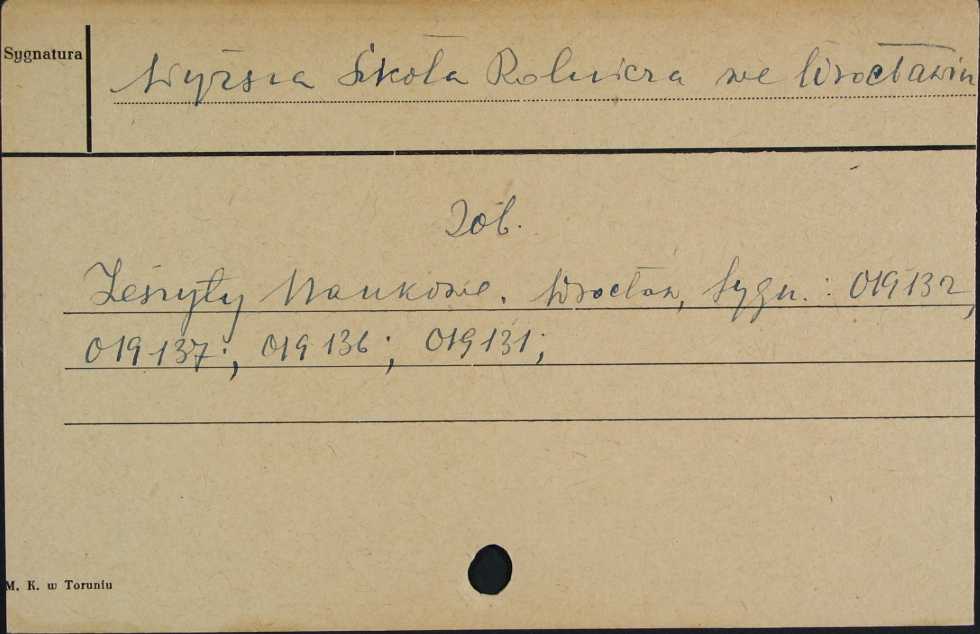 Sygnatura
Wyższa Szkoła Rolnicza we Wrocławiu
Zob.
Zeszyty Naukowe. Wrocław, Sygn.: 019132,
019137; 019136; 019131;
M. K. w Toruniu